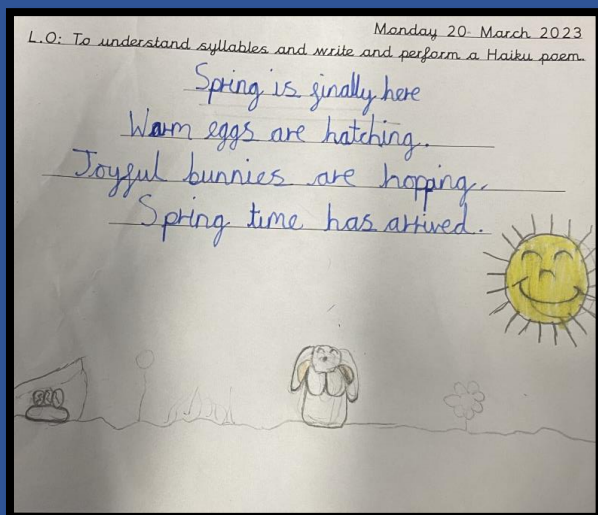 Monday 20- March 2023
L.O: To understand syllables and write and perform a Haiku poem.
Spring is finally here
Warm eggs are hatching.
Joyful bunnies are hopping.
Spring time has arrived.